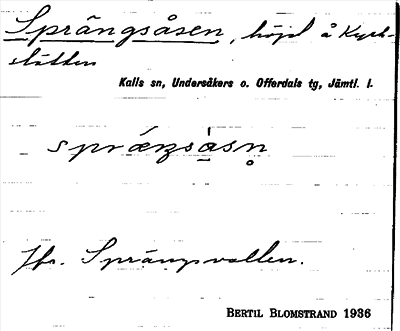 Sprängsåsen, höjd å Kyrk-
slätten
Kalls sn, Undersåkers o. Offerdals tg, Jämtl. l.
Jfr. Sprängsvallen.
BERTIL BLOMSTRAND 1936